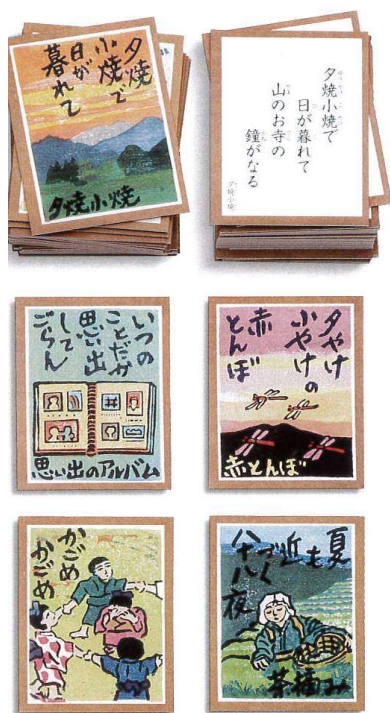 夕焼
小焼で
日が
暮れて
夕焼小焼
夕焼小焼で
日が暮れて
山のお寺の
鐘がなる
夕焼小焼
いつの
ことだか
思い出
して
ごらん
思い出のアルバム
夕やけ
小やけの
赤
とんぼ
赤とんぼ
かごめ
かごめ
夏
も近
づく
八十八夜
茶摘み